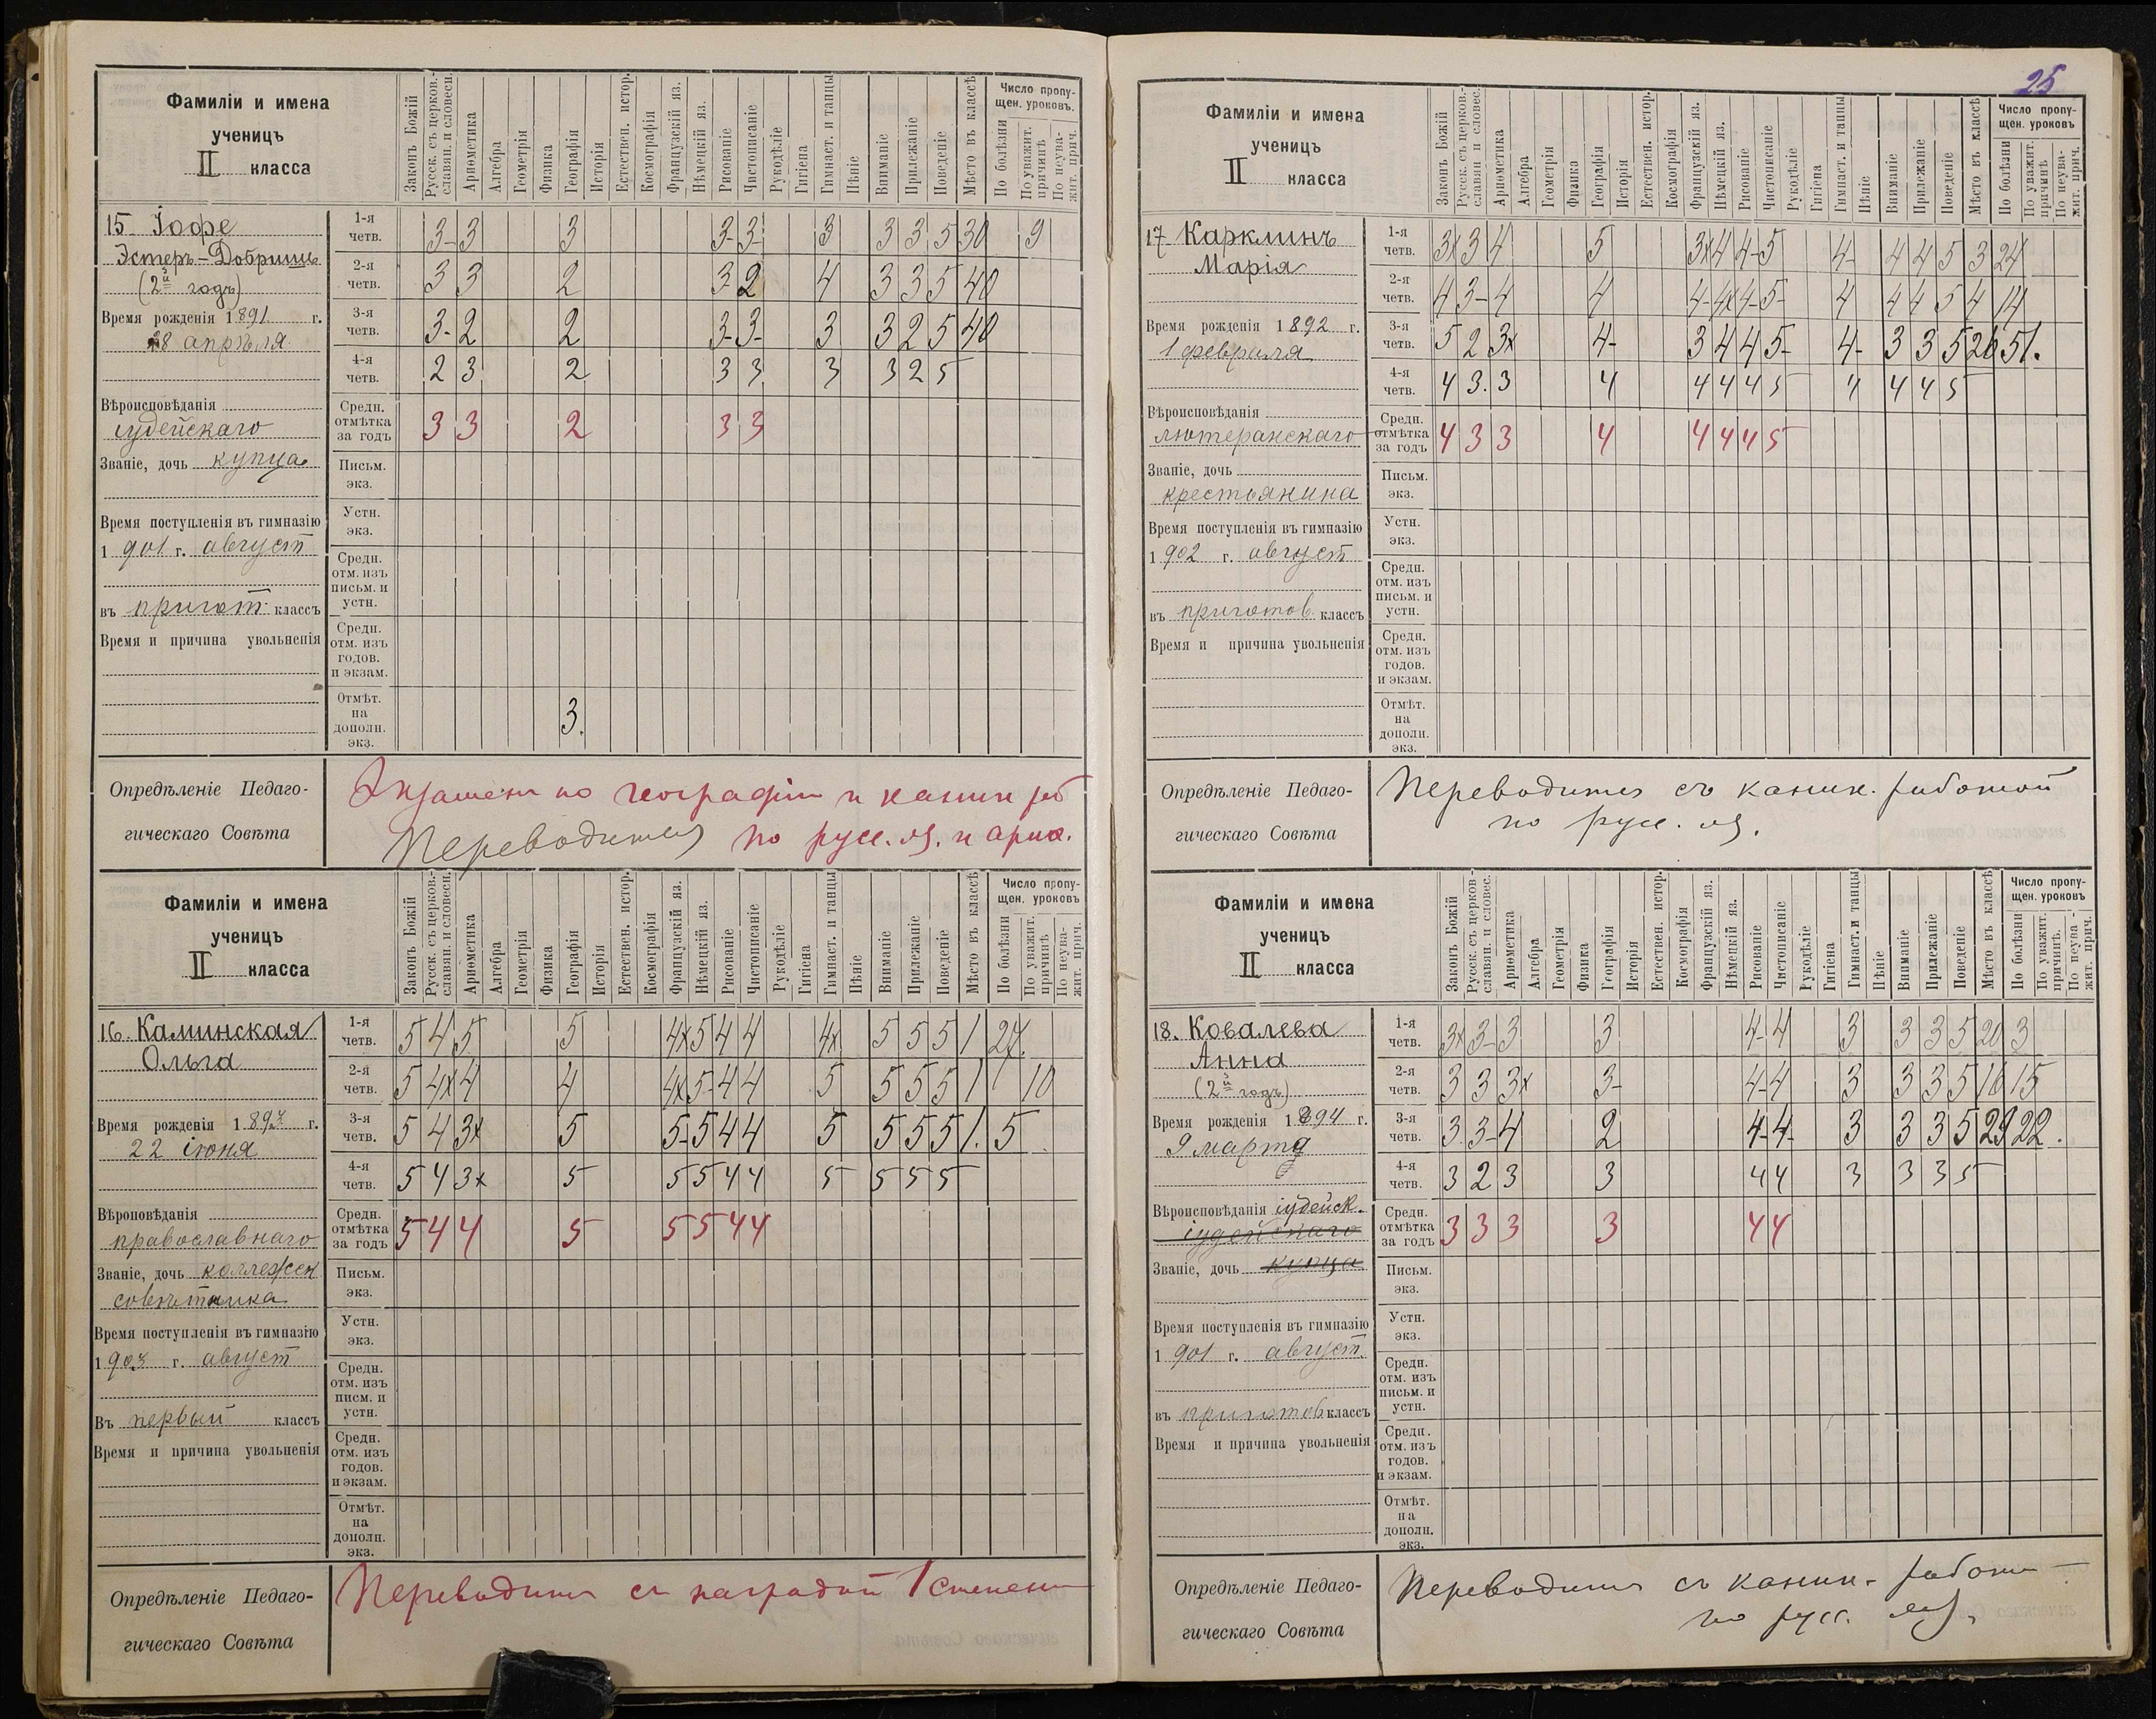 25
Фамиліи и имена
ученицъ
II класса
Законъ Божій
Русск. съ церков.-славян. и словесн.
Ариѳметика
Алгебра
Геометрія
Физика
Географія
Исторія
Естествен. истор.
Космографія
Французскій яз.
Нѣмецкій яз.
Рисованіе
Чистописаніе
Рукодѣліе
Гигіена
Гимнаст. и танцы
Пѣніе
Вниманіе
Прилежаніе
Поведеніе
Мѣсто въ классѣ
Число пропущен. уроковъ.
По болѣзни
По уважит. причинѣ
По неуважит. прич.
15 Іоффе
Эстеръ-Добришъ
(2й годъ)
Время рожденія 1891 г.
28 апрѣля
Вѣроисповѣданія
іудейскаго
Званіе, дочь купца
Время поступленія въ гимназію
1901 г. август
въ пригот. классъ
Время и причина увольненія
1-я четв. 3- 3 3 3- 3- 3 3 3 5 30 9
2-я четв. 3 3 2 3 2 4 3 3 5 40
3-я четв. 3- 2 2 3- 3- 3 3 2 5 40
4-я четв. 2 3 2 3 3 3 3 2 5
Средн. отмѣтка за годъ 3 3 2 3 3
Письм. экз.
Устн. экз.
Средн. отм. изъ письм. и устн.
Средн. отм. изъ годов. и экзам.
Отмѣт. на дополн. экз. 3.
Опредѣленіе Педаго-
гическаго Совѣта
Экзаменъ по географіи и каник раб
Переводится по русс. яз. и ариѳ.
Фамиліи и имена
ученицъ
II класса
Законъ Божій
Русск. съ церков.-славян. и словесн.
Ариѳметика
Алгебра
Геометрія
Физика
Географія
Исторія
Естествен. истор.
Космографія
Французскій яз.
Нѣмецкій яз.
Рисованіе
Чистописаніе
Рукодѣліе
Гигіена
Гимнаст. и танцы
Пѣніе
Вниманіе
Прилежаніе
Поведеніе
Мѣсто въ классѣ
Число пропущен. уроковъ
По болѣзни
По уважит. причинѣ
По неуважит. прич.
16. Каминская
Ольга
Время рожденія 1893 г.
22 іюня
Вѣроповѣданія
православнаго
Званіе, дочь коллежск
совѣтника
Время поступленія въ гимназію
1903 г. август
Въ первый классъ
Время и причина увольненія
1-я четв. 5 4 5 5 4x 5 4 4 4x 5 5 5 1 24
2-я четв. 5 4x 4 4 4x 5- 4 4 5 5 5 5 1 10
3-я четв. 5 4 3x 5 5- 5 4 4 5 5 5 5 1. 5
4-я четв. 5 4 3x 5 5 5 4 4 5 5 5 5
Средн. отмѣтка за годъ 5 4 4 5 5 5 4 4
Письм. экз.
Устн. экз.
Средн. отм. изъ писм. и устн.
Средн. отм. изъ годов. и экзам.
Отмѣт. на дополн. экз.
Опредѣленіе Педаго-
гическаго Совѣта
Переводится съ наградой I степени
Фамиліи и имена
ученицъ
II класса
Законъ Божій
Русск. съ церков.-славян и словес.
Ариѳметика
Алгебра
Геометрія
Физика
Географія
Исторія
Естествен. истор.
Космографія
Французскій яз.
Нѣмецкій яз.
Рисованіе
Чистописаніе
Рукодѣліе
Гигіена
Гимнаст. и танцы
Пѣніе
Вниманіе
Прилежаніе
Поведеніе
Мѣсто въ классѣ
Число пропущен. уроковъ
По болѣзни
По уважит. причинѣ
По неуважит. прич.
17 Карклинъ
Марія
Время рожденія 1892 г.
1 февраля
Вѣроисповѣданія
лютеранскаго
Званіе, дочь
крестьянина
Время поступленія въ гимназію
1902 г. август
въ приготов. классъ
Время и причина увольненія
1-я четв. 3x 3 4 5 3x 4 4- 5 4- 4 4 5 3 24
2-я четв. 4 3- 4 4 4- 4x 4- 5- 4 4 4 5 4 14
3-я четв. 5 2 3x 4- 3 4 4 5- 4- 3 3 5 26 51.
4-я четв. 4 3. 3 4 4 4 4 5 4 4 4 5
Средн. отмѣтка за годъ 4 3 3 4 4 4 4 5
Письм. экз.
Устн. экз.
Средн. отм. изъ письм. и устн.
Средн. отм. изъ годов. и экзам.
Отмѣт. на дополн. экз.
Опредѣленіе Педаго-
гическаго Совѣта
Переводится съ каник. работой
по русс. яз.
Фамиліи и имена
ученицъ
II класса
Законъ Божій
Русск. съ церков-славян. и словес.
Ариѳметика
Алгебра
Геометрія
Физика
Географія
Исторія
Естествен. истор.
Космографія
Французскій яз.
Нѣмецкій яз.
Рисованіе
Чистописаніе
Рукодѣліе
Гигіена
Гимнаст. и танцы
Пѣніе
Вниманіе
Прилежаніе
Поведеніе
Мѣсто въ классѣ
Число пропущен. уроковъ
По болѣзни
По уважит. причинѣ.
По неуважит. прич.
18. Ковалева
Анна
(2й годъ)
Время рожденія 1894 г.
9 марта
Вѣроисповѣданія іудейск.
іудейскаго
Званіе, дочь купца
Время поступленія въ гимназію
1901 г. август.
въ приготов классъ
Время и причина увольненія
1-я четв. 3x 3- 3 3 4- 4 3 3 3 5 20 3
2-я четв. 3 3 3x 3- 4- 4 3 3 3 5 16 15
3-я четв. 3 3- 4 2 4- 4- 3 3 3 5 29 22.
4-я четв. 3 2 3 3 4 4 3 3 3 5
Средн. отмѣтка за годъ 3 3 3 3 4 4
Письм. экз.
Устн. экз.
Средн. отм. изъ письм. и устн.
Средн. отм. изъ годов. и экзам.
Отмѣт. на дополн. экз.
Опредѣленіе Педаго-
гическаго Совѣта
Переводится съ каник. работ
по русс. яз.